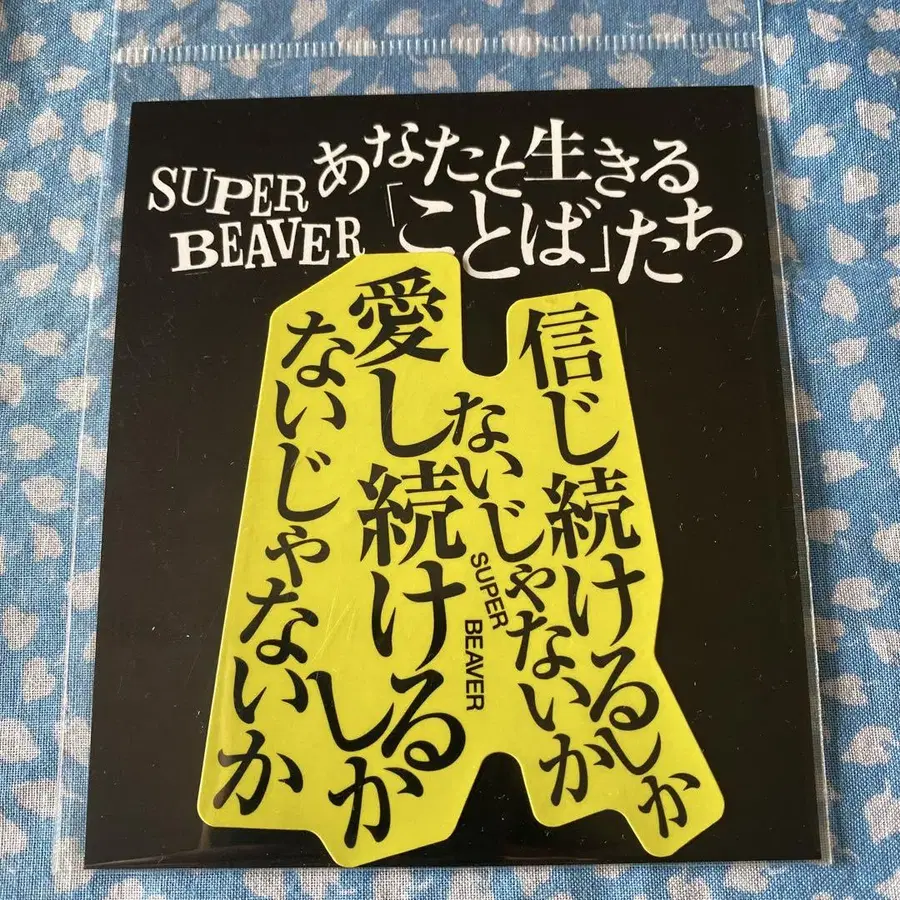 SUPER BEAVER
あなたと生きる
「ことば」たち
信じ続けるしか
ないじゃないか
愛し続けるしか
ないじゃないか
SUPER BEAVER